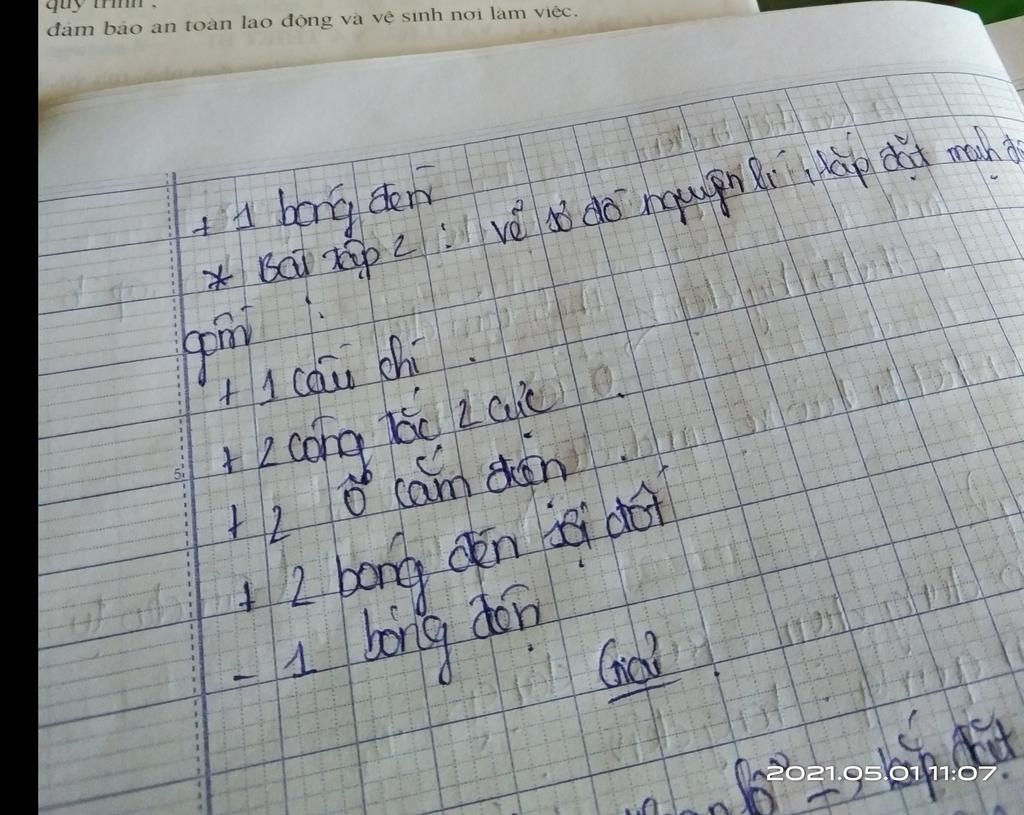 quy trình ;
đảm bảo an toàn lao động và vệ sinh nơi làm việc.
+ 1 bóng đèn
* Bài tập 2 : vẽ sơ đồ nguyên lí, lắp đặt mạch
gồm :
+ 1 cầu chì .
+ 2 công tắc 2 cực .
+ 2 ổ cắm điện .
+ 2 bóng đèn sợi đốt
- 1 bóng đèn .
Giải .
5
→ lắp đặt
2021.05.01 11:07